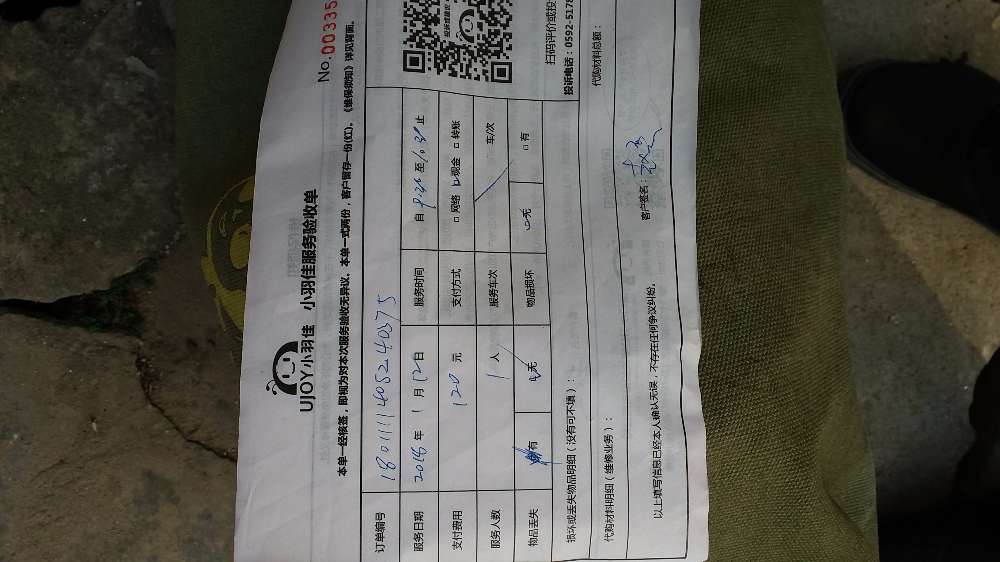 No.00335
UJOY小羽佳 小羽佳服务验收单
本单一经核签，即视为对本次服务验收无异议。本单一式两份，客户留存一份(红)。《维保须知》详见背面。
订单编号 1801111405240375
服务日期 2018年1月12日 服务时间 自 至 止
支付费用 120元 支付方式 □网络 □现金 □转账
服务人数 1人 服务车次 车/次
物品丢失 有 无 物品损坏 无 □有
损坏或丢失物品明细（没有可不填）：
扫码评价或投
投诉电话：0592-5178
代购材料明细（维修业务）：
代购材料总额：
以上填写信息已经本人确认无误，不存在任何争议纠纷。
客户签名：